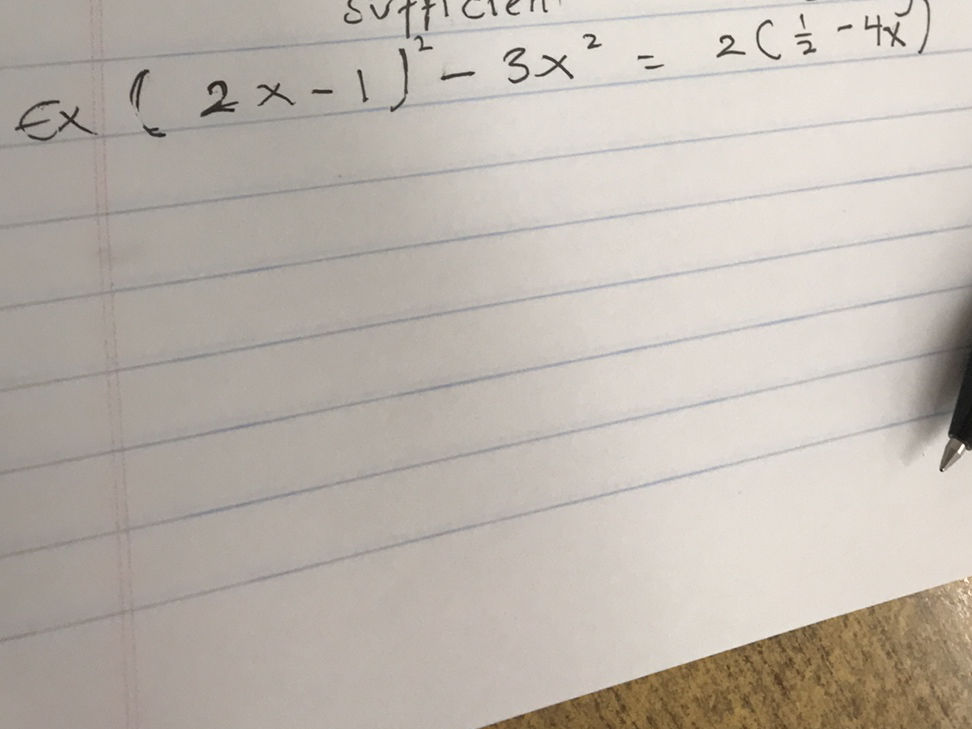 sufficient
Ex ( 2x - 1 )² - 3x² = 2 ( ½ - 4x )